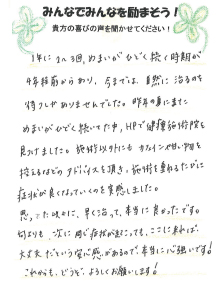 みんなでみんなを励まそう！
貴方の喜びの声を聞かせてください！
1年に2～3回、めまいがひどく続く時期が
4年程前からあり、今までは、自然に治るのを
待つしかありませんでした。昨年の夏にまた
めまいがひどく続いていた中、HPで健療施術院を
見つけました。施術以外にも カフェインや甘い物を
控えるなどの アドバイスを頂き、施術を重ねるたびに
症状が良くなっていくのを実感しました。
思った以上に、早く治って、本当に良かったです。
何よりも、次に同じ症状が起こっても、ここに来れば
大丈夫だという安心感があるので、本当に心強いです!
これからも、どうぞ、よろしくお願いします!